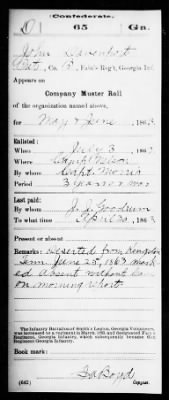 Confederate.
D 65 Ga.
John Davenport
Pvt., Co. B, Fain's Reg't, Georgia Inf.
Appears on
Company Muster Roll
of the organization named above,
for May & June, 1863.
Enlisted:
When July 3, 1862
Where Camp Nelson
By whom Capt Morris
Period 3 years or war
Last paid:
By whom J. J. Goodrum
To what time April 30, 1863.
Present or absent
Remarks: Deserted from Kingston
Tenn June 25, 1863 mark
ed absent without leave
on morning report
The Infantry Battalion of Smith's Legion, Georgia Volunteers,
was increased to a regiment in March, 1863, and designated Fain's
Regiment, Georgia Infantry, which subsequently became 65th
Regiment Georgia Infantry.
Book mark:
(642) Boyd
Copyist.